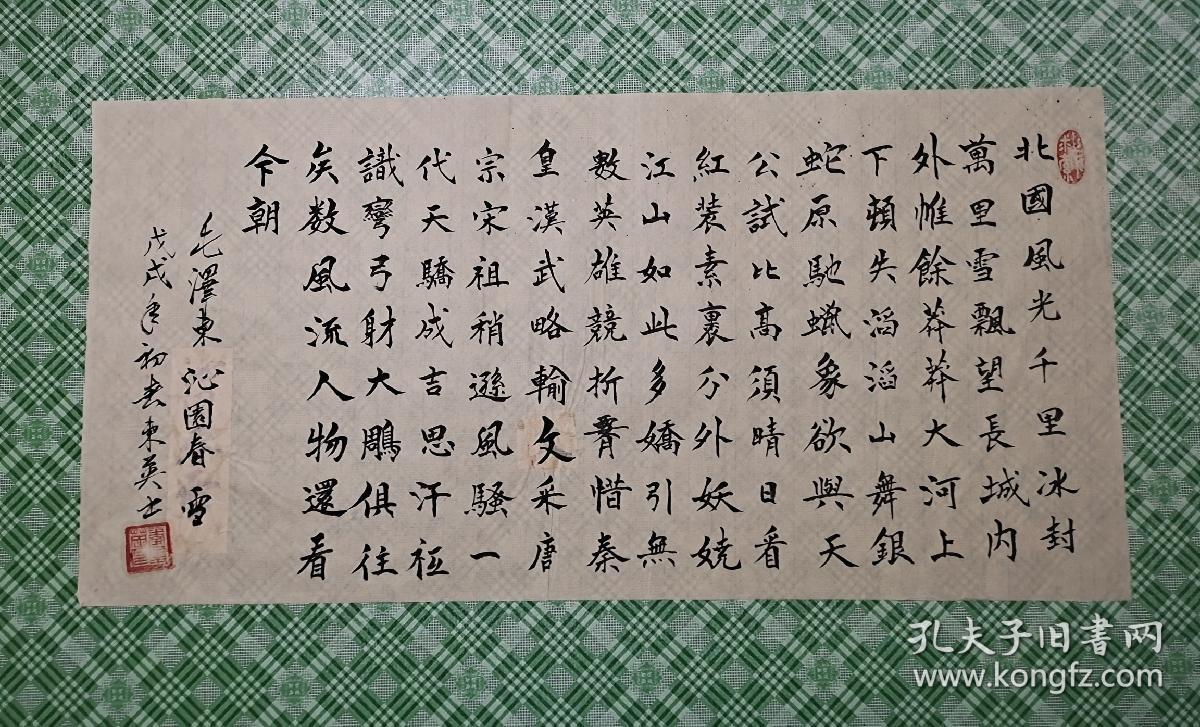 北國風光千里冰封
萬里雪飄望長城内
外惟餘莽莽大河上
下頓失滔滔山舞銀
蛇原馳蠟象欲與天
公試比高須晴日看
紅裝素裹分外妖嬈
江山如此多嬌引無
數英雄競折惜秦
皇漢武略輸文采唐
宗宋祖稍遜風騷一
代天驕成吉思汗祇
識彎弓射大鵰俱往
矣数風流人物還看
今朝
毛澤東 沁園春 雪
戊戌年初春東英士
孔夫子旧书网
www.kongfz.com